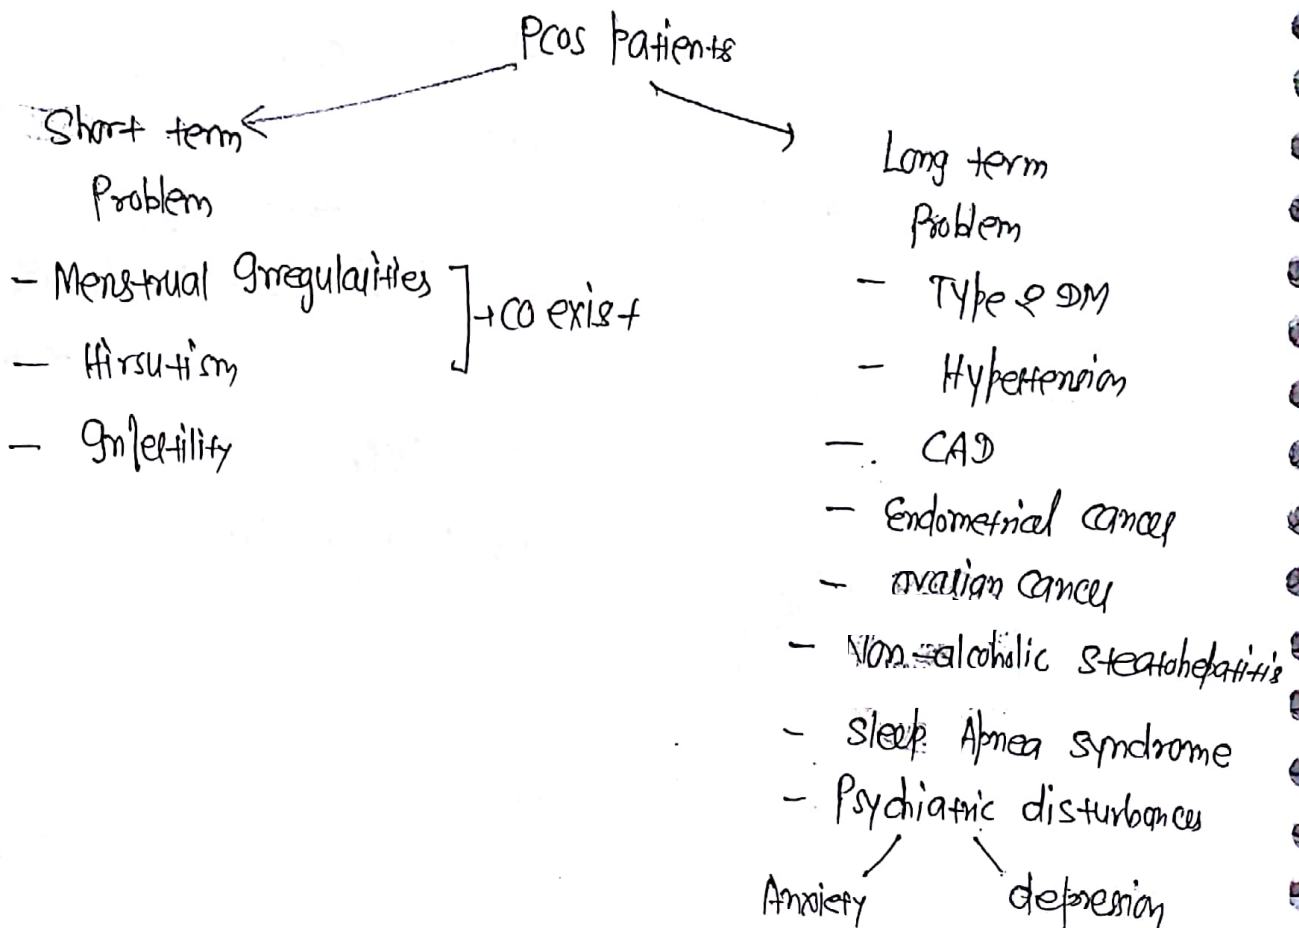 PCOS patients
Short term
Problem
- Menstrual Irregularities
- Hirsutism
] → co exist
- Infertility
Long term
Problem
- Type 2 DM
- Hypertension
- CAD
- Endometrical cancer
- ovarian cancer
- Non-alcoholic steatohepatitis
- Sleep Apnea syndrome
- Psychiatric disturbances
Anxiety depression